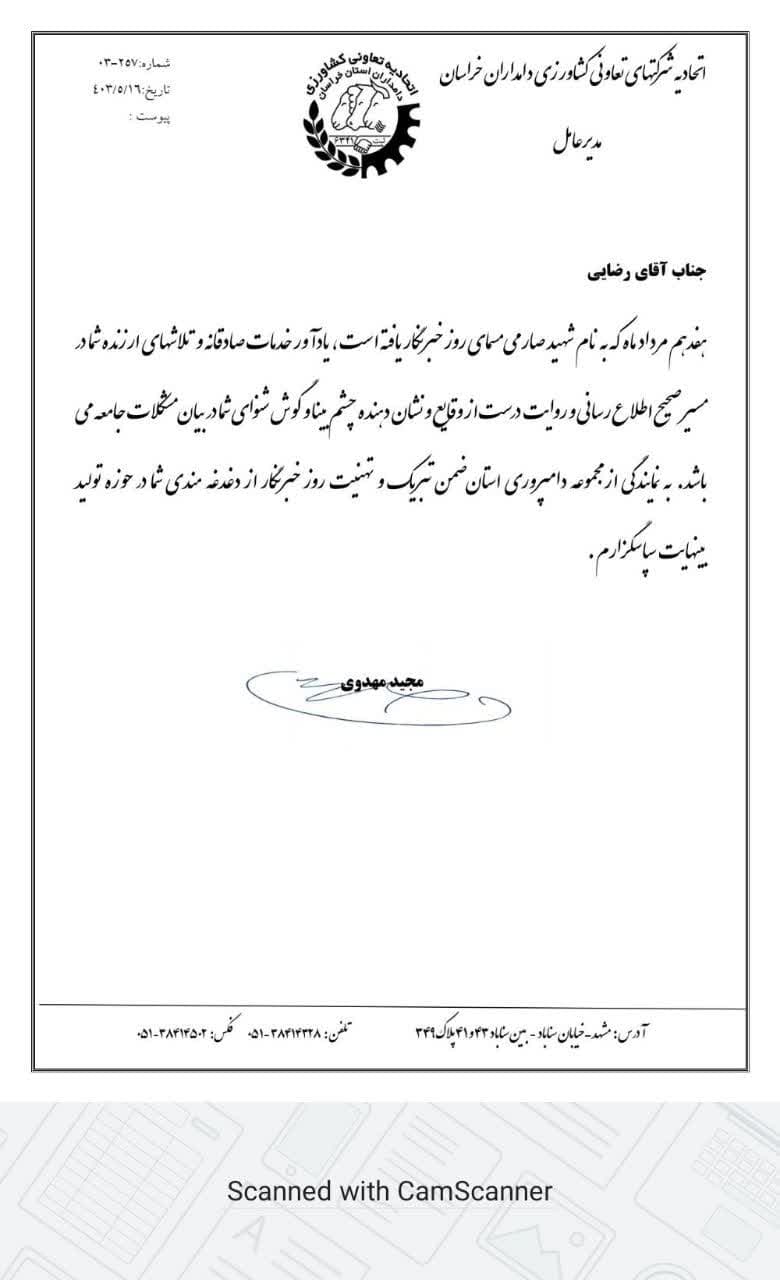 اتحادیه شرکتهای تعاونی کشاورزی دامداران خراسان
مدیرعامل
اتحادیه تعاونی کشاورزی
دامداران استان خراسان
ثبت ۶۳۴۱
شماره:۲۵۷-۰۳
تاریخ:۴۰۳/۵/۱۶
پیوست :
جناب آقای رضایی
هفدهم مرداد ماه که به نام شهید صارمی مسمای روز خبرنگار یافته است، یادآور خدمات صادقانه و تلاشهای ارزنده شما در
مسیر صحیح اطلاع رسانی و روایت درست از وقایع و نشان دهنده چشم بینا و گوش شنوای شما در بیان مشکلات جامعه می
باشد. به نمایندگی از مجموعه دامپروری استان ضمن تبریک و تهنیت روز خبرنگار از دغدغه مندی شما در حوزه تولید
بینهایت سپاسگزارم .
مجید مهدوی
آدرس: مشهد-خیابان سناباد - بین سناباد ۴۳و۴۱ پلاک ۳۴۹ تلفن: ۳۸۴۱۴۳۲۸-۰۵۱ فکس: ۳۸۴۱۴۵۰۲-۰۵۱
Scanned with CamScanner